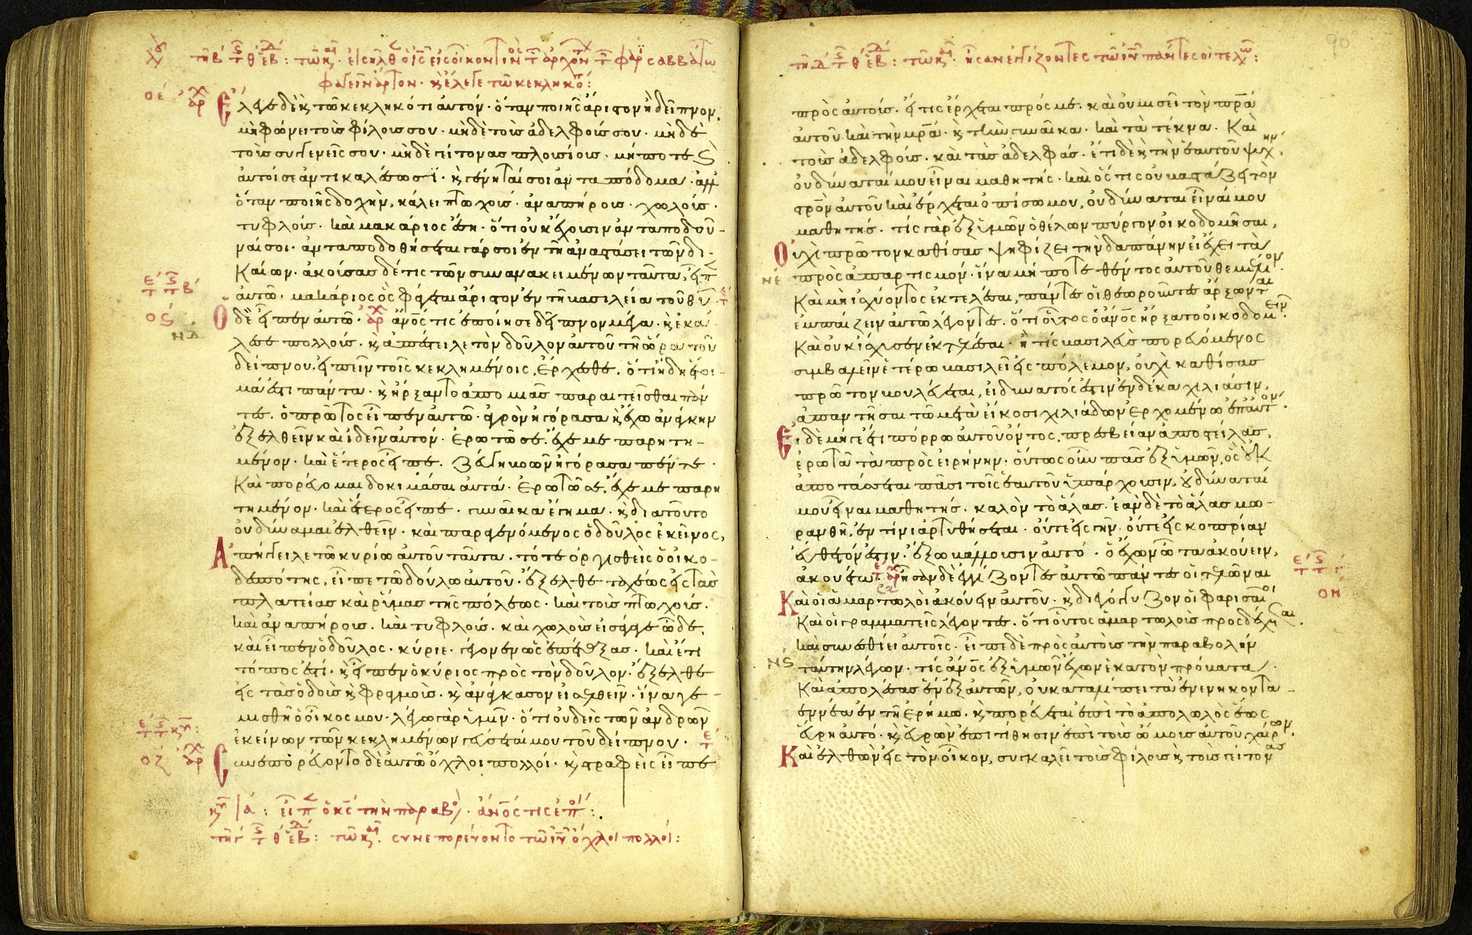 τῶ κεκληκότι
Ἔλεγε δὲ κ τῶ κεκληκότι αὐτόν· ὅταν ποιῆς ἄριστον ἢ δεῖπνον,
μὴ φώνει τοὺς φίλους σου· μὴ δὲ τοὺς ἀδελφούς σου· μὴ δὲ
τοὺς συγγενεῖς σου· μὴ δὲ γείτονας πλουσίους· μήποτε κ
αὐτοί σε ἀντικαλέσωσι· κ γένηταί σοι ἀνταπόδομα· ἀλλ
ὅταν ποιῆς δοχὴν, κάλει πτωχούς· ἀναπήρους· χωλούς·
τυφλούς· καὶ μακάριος ἔση· ὅτι οὐκ ἔχουσιν ἀνταποδοῦ-
ναί σοι· ἀνταποδοθήσεται γάρ σοι ἐν τῆ ἀναστάσει τῶν δι-
καίων· ἀκούσας δέ τις τῶν συνανακειμένων ταῦτα, εἶπ
αὐτῶ· μακάριος ὃς φάγεται ἄριστον ἐν τῆ βασιλεία τοῦ θυ·
Ὁ δὲ εἶπεν αὐτῶ· ἄνος τις ἐποίησε δεῖπνον μέγα· κ ἐκά-
λεσε πολλούς· κ ἀπέστειλε τὸν δοῦλον αὐτοῦ τῆ ὥρα τοῦ
δείπνου· εἰπεῖν τοῖς κεκλημένοις, ἔρχεσθε· ὅτι ἤδη ἕτοι-
μά ἐστι πάντα· κ ἤρξαντο ἀπὸ μιᾶς παραιτεῖσθαι πάν
τες· ὁ πρῶτος εἶπεν αὐτῶ· ἀγρὸν ἠγόρασα κ ἔχω ἀνάγκην
ἐξελθεῖν καὶ ἰδεῖν αὐτόν· ἐρωτῶ σε· ἔχε με παρητη-
μένον· καὶ ἕτερος εἶπε· ζεύγη βοῶν ἠγόρασα πέντε·
καὶ πορεύομαι δοκιμάσαι αὐτά· ἐρωτῶ σε, ἔχε με παρη
τημένον· καὶ ἕτερος εἶπε· γυναῖκα ἔγημα· κ διὰ τοῦτο
οὐ δύναμαι ἐλθεῖν· καὶ παραγενόμενος ὁ δοῦλος ἐκεῖνος,
Ἀπήγγειλε τῶ κυρίω αὐτοῦ ταῦτα· τότε ὀργισθεὶς ὁ οἰκο-
δεσπότης, εἶπε τῶ δούλω αὐτοῦ· ἔξελθε ταχέως εἰς τὰς
πλατείας καὶ ῥύμας τῆς πόλεως· καὶ τοὺς πτωχούς·
καὶ ἀναπήρους· καὶ τυφλούς· καὶ χωλοὺς εἰσάγαγε ὧδε,
καὶ εἶπεν ὁ δοῦλος· κύριε· γέγονεν ὡς ἐπέταξας· καὶ ἔτι
τόπος ἐστί· κ εἶπεν ὁ κύριος πρὸς τὸν δοῦλον· ἔξελθε
εἰς τὰς ὁδοὺς κ φραγμούς· κ ἀνάγκασον εἰσελθεῖν· ἵνα γε-
μισθῆ ὁ οἶκός μου· λέγω γὰρ ὑμῖν· ὅτι οὐδεὶς τῶν ἀνδρῶν
ἐκείνων τῶν κεκλημένων γεύσεταί μου τοῦ δείπνου·
Συνεπορεύοντο δὲ αὐτῶ ὄχλοι πολλοί· κ στραφεὶς εἶπε
συνεπορεύοντο τῶ ιῦ ὄχλοι πολλοί:
90
πρὸς αὐτούς· εἴ τις ἔρχεται πρός με· καὶ οὐ μισεῖ τὸν πρα
αὐτοῦ καὶ τὴν μρα· κ τὴν γυναῖκα· καὶ τὰ τέκνα· καὶ
τοὺς ἀδελφούς· καὶ τὰς ἀδελφάς· ἔτι δὲ κ τὴν ἑαυτοῦ ψυχήν·
οὐ δύναταί μου εἶναι μαθητής· καὶ ὅστις οὐ βαστάζει τὸν
στρον αὐτοῦ καὶ ἔρχεται ὀπίσω μου, οὐ δύναται εἶναί μου
μαθητής· τίς γὰρ ἐξ ὑμῶν ὁ θέλων πύργον οἰκοδομῆσαι,
Οὐχὶ πρῶτον καθίσας ψηφίζει τὴν δαπάνην εἰ ἔχει τὰ
πρὸς ἀπαρτισμόν· ἵνα μήποτε θέντος αὐτοῦ θεμέλιον
καὶ μὴ ἰσχύοντος ἐκτελέσαι, πάντες οἱ θεωροῦντες ἄρξωνται
ἐμπαίζειν αὐτῶ λέγοντες· ὅτι οὗτος ὁ ἄνος ἤρξατο οἰκοδομεῖν·
καὶ οὐκ ἴσχυσεν ἐκτελέσαι· ἢ τίς βασιλεὺς πορευόμενος
συμβαλεῖν ἑτέρω βασιλεῖ εἰς πόλεμον, οὐχὶ καθίσας
πρῶτον βουλεύεται, εἰ δυνατός ἐστιν ἐν δέκα χιλιάσιν,
ἀπαντῆσαι τῶ μετὰ εἴκοσι χιλιάδων ἐρχομένω ἐπ αὐτόν·
Εἰ δὲ μήγε ἔτι πόρρω αὐτοῦ ὄντος, πρεσβείαν ἀποστείλας,
ἐρωτᾶ τὰ πρὸς εἰρήνην· οὕτως οὖν πᾶς ἐξ ὑμῶν, ὃς οὐκ
ἀποτάσσεται πᾶσι τοῖς ἑαυτοῦ ὑπάρχουσιν, οὐ δύναταί
μου εἶναι μαθητής· καλὸν τὸ ἅλας· ἐὰν δὲ τὸ ἅλας μω-
ρανθῆ, ἐν τίνι ἀρτυθήσεται· οὔτε εἰς γῆν, οὔτε εἰς κοπρίαν
εὔθετόν ἐστιν· ἔξω βάλλουσιν αὐτό· ὁ ἔχων ὦτα ἀκούειν,
ἀκουέτω· ἦσαν δὲ ἐγγίζοντες αὐτῶ πάντες οἱ τελῶναι
Καὶ οἱ ἁμαρτωλοὶ ἀκούειν αὐτοῦ· κ διεγόγγυζον οἱ φαρισαῖοι
καὶ οἱ γραμματεῖς λέγοντες· ὅτι οὗτος ἁμαρτωλοὺς προσδέχεται·
καὶ συνεσθίει αὐτοῖς· εἶπε δὲ πρὸς αὐτοὺς τὴν παραβολὴν
ταύτην λέγων· τίς ἄνος ἐξ ὑμῶν ἔχων ἑκατὸν πρόβατα·
καὶ ἀπολέσας ἓν ἐξ αὐτῶν, οὐ καταλείπει τὰ ἐνενηκοντα-
εννέα ἐν τῆ ἐρήμω· κ πορεύεται ἐπὶ τὸ ἀπολωλὸς ἕως
εὕρη αὐτό· κ εὑρὼν ἐπιτίθησιν ἐπὶ τοὺς ὤμους αὐτοῦ χαίρων·
Καὶ ἐλθὼν εἰς τὸν οἶκον, συγκαλεῖ τοὺς φίλους κ τοὺς γείτονας